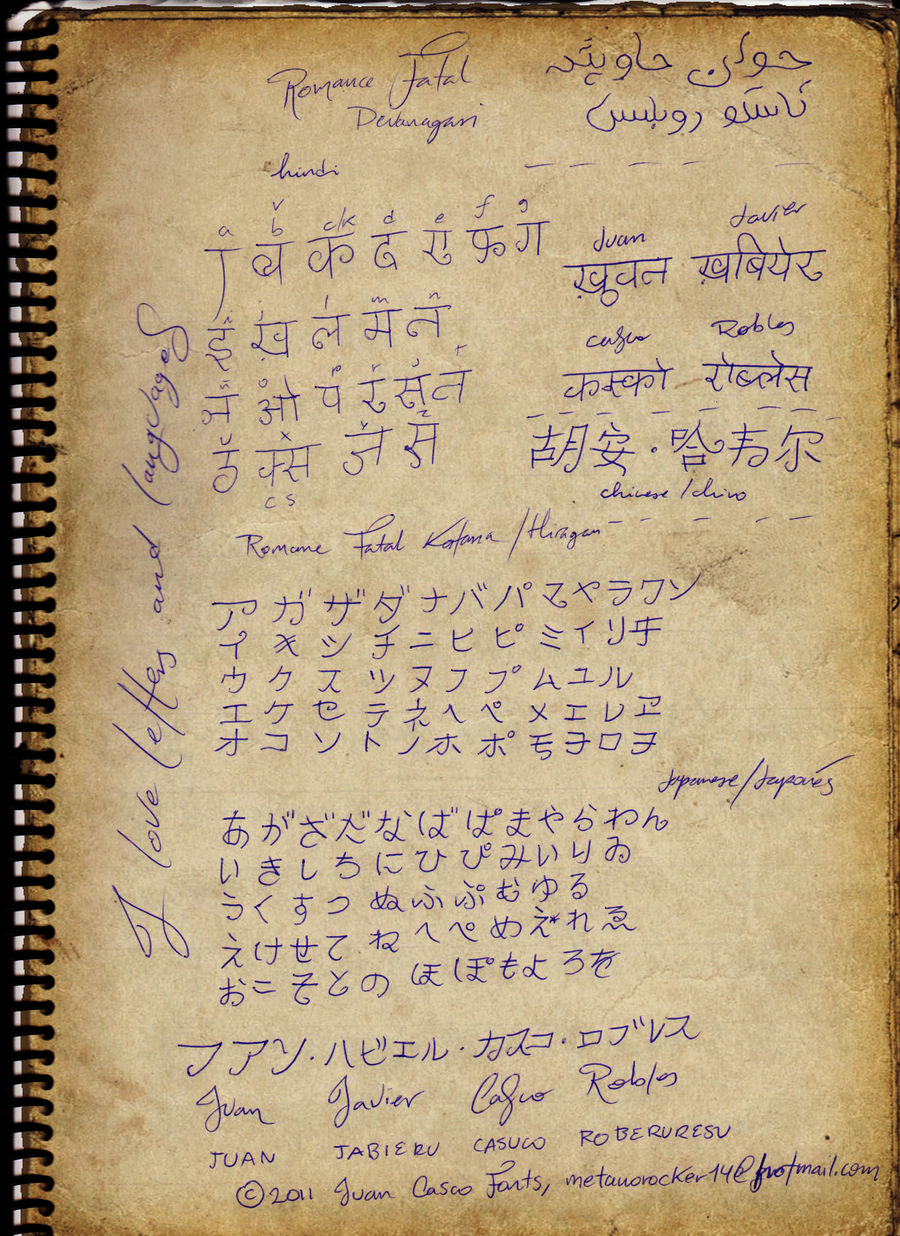 Romance Fatal
Devanagari
جوان جاويير
كاسكو روبليس
hindi
a v b c/k d e f g
ब क द ए फ ग
Juan Javier
ख़ुवान ख़बियेर
ख़ ल म न
casco Robles
कास्को रोब्लेस
ओ प र स त
क्स ज स
cs
胡安·哈韦尔
chinese/chino
Romance Fatal Katana/Hiragan
アガザダナバパマヤラワン
イキシチニヒピミイリヰ
ウクスツヌフプムユル
エケセテネヘペメエレヱ
オコソトノホポモヨロヲ
Japanese/Japonés
あがざだなばぱまやらわん
いきしちにひぴみいりゐ
うくすつぬふぷむゆる
えけせてねへぺめえ*れゑ
おこそとのほぽもよろを
フアン・ハビエル・カスコ・ロブレス
Juan Javier Casco Robles
JUAN JABIERU CASUCO ROBERURESU
©2011 Juan Casco Fonts, metanorocker14@hotmail.com
I love letters and languages